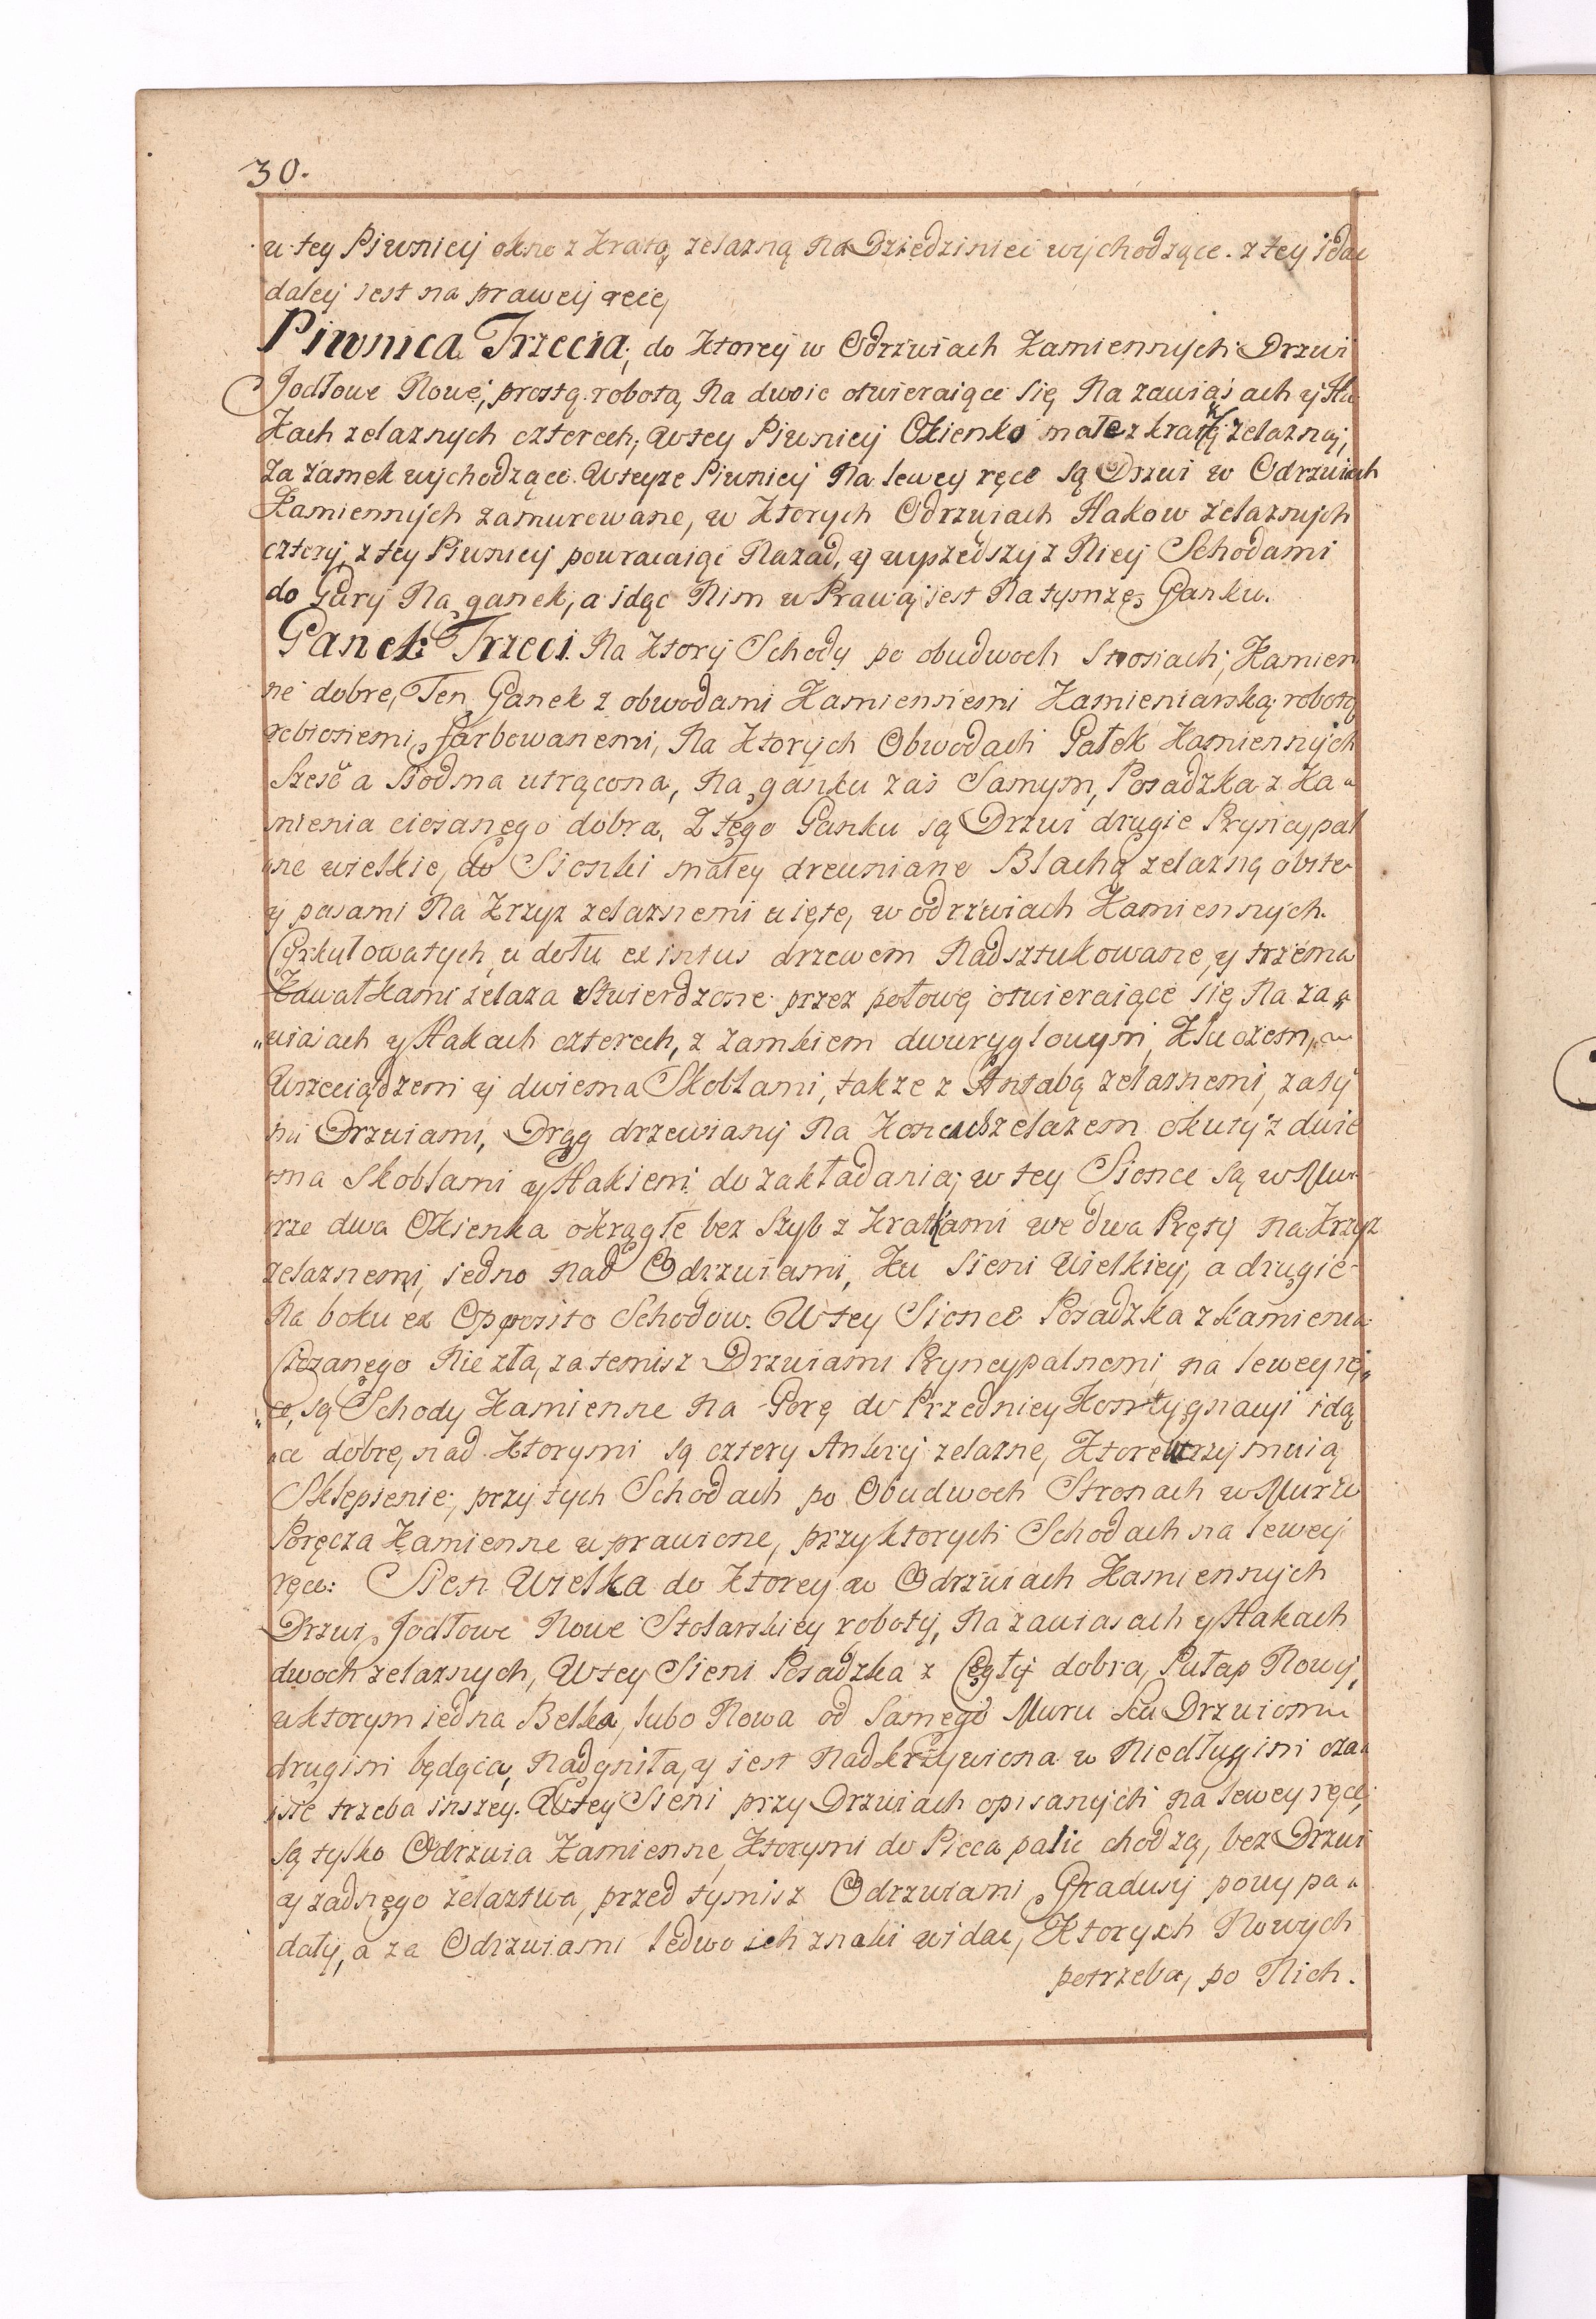 30.
w tey Piwnicy okno z kratą zelazną na Dziedziniec wychodzące. z tey idąc
daley iest na prawey ręcę
Piwnica Trzecia; do ktorey w Odrzwiach Kamiennych Drzwi
Jodłowe Nowe, prostą robotą, na dwoie otwieraiące się na zawiasach y Ha-
kach zelaznych czterech; w tey Piwnicy Okienko małe z kratką zelazną,
za zamek wychodzące. w teyze Piwnicy na lewey ręce są Drzwi w Odrzwiach
Kamiennych zamurowane, w ktorych Odrzwiach Hakow zelaznych
cztery, z tey Piwnicy powracaiąc nazad, y wyszedszy z Niey Schodami
do Gury na ganek, a idąc Nim w Prawą iest na tymze Ganku.
Ganek Trzeci. Na ktory Schody po obudwoch Stronach, Kamien
ne dobre, Ten Ganek z obwodami Kamiennemi Kamieniarską robotą
robionemi, farbowanemi, na ktorych Obwodach Gałek Kamiennych
Sześć a Siodma utrącona, na ganku zas Samym, Posadzka z Ka„
mienia ciosanego dobra, Z tego Ganku są Drzwi drugie Pryncypal
ne wielkie, do Sionki małey drewniane Blachą zelazną obite
y pasami na krzyz zelaznemi uięte, w odrzwiach Kamiennych
Cyrkułowatych, u dołu ex intus drzewem nadsztukowane, y trzema
Kawałkami zelaza stwierdzone przez połowę otwieraiące się na za„
„wiasach y Hakach czterech, z zamkiem dwuryglowym, Kluczem,
Wrzeciądzem y dwiema Skoblami, takze z Antabą zelaznemi, za ty
mi Drzwiami, Drąg drzewiany na koncach zelazem okuty z dwie
ma Skoblami y Hakiem do zakładania; w tey Sionce są w Mu-
rze dwa Okienka okrągłe bez Szyb z kratkami we dwa Pręty na krzyz
zelaznemi, iedno nad Odrzwiami, ku Sieni Wielkiey, a drugie
na boku ex Opposito Schodow. W tey Sionce Posadzka z kamienia
Ciozanego nie zła, za temisz Drzwiami Pryncypalnemi na lewey rę„
„ce, są Schody Kamienne na Gorę do Przedniey Kontygnacyi idą
„ce dobre, nad ktorymi są cztery Ankry zelazne, ktore utrzymuią
Sklepienie, przy tych Schodach po Obudwoch Stronach w Murze
Poręcza Kamienne wprawione, przy ktorych Schodach na lewey
ręce: Sień Wielka do ktorey w Odrzwiach Kamiennych
Drzwi Jodłowe Nowe Stolarskiey roboty, na zawiasach y Hakach
dwoch zelaznych, W tey Sieni Posadzka z Cegły dobra, Pułap Nowy,
w ktorym iedna Belka, lubo Nowa od Samego Muru ku Drzwiom
drugim będąca, nadgniła, y iest nadkrzywiona w niedługim cza„
sie trzeba inszey. W tey Sieni przy Drzwiach opisanych na lewey ręce,
są tylko Odrzwia Kamienne, ktorymi do Pieca palić chodzą, bez Drzwi
y zadnego zelaztwa, przed tymisz Odrzwiami Gradusy powypa„
dały, a za Odrzwiami ledwo ich znaki widać, ktorych Nowych
potrzeba, po Nich.